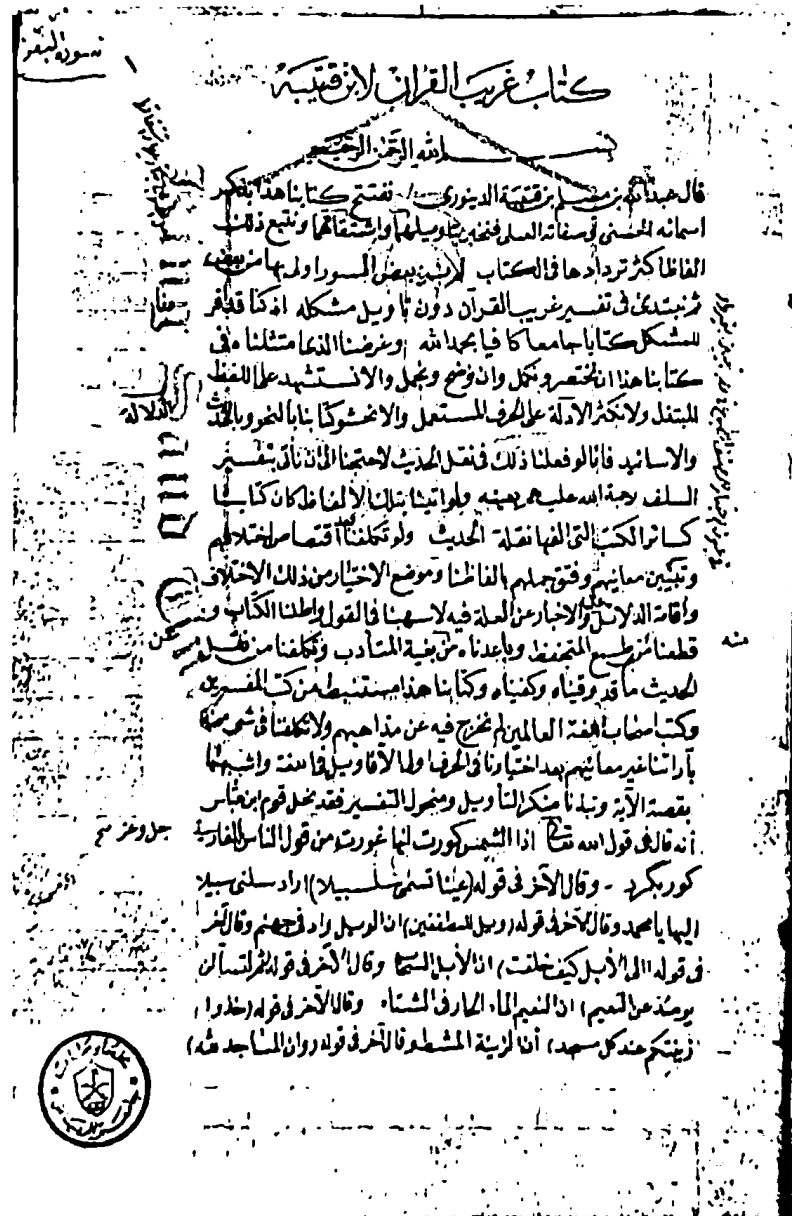 سورة البقرة
كتاب غريب القرآن لابن قتيبة
بسم الله الرحمن الرحيم
قال عبدالله بن مسلم بن قتيبة الدينوري نفتتح كتابنا هذا بذكر
اسمائه الحسنى وصفاته العلى فنخبر بتأويلهما واشتقاقهما ونتبع ذلك
الفاظا كثر تردادها في الكتاب لم نر بعض السور اولى بها من بعض
ثم نبتدئ في تفسير غريب القرآن دون تاويل مشكله اذ كنا قد افر
للمشكل كتابا جامعا كافيا بحمد الله وغرضنا الذي امتثلناه في
كتابنا هذا ان نختصر ونكمل وان نوضح ونجمل والا نستشهد على اللفظ
المبتذل ولا نكثر الادلة على الحرف المستعمل والا نحشو كتابنا بالنحو وبالحديث
الدلالة
والاسانيد فانا لو فعلنا ذلك في نقل الحديث لاحتجنا الى ان نأتي بتفسير
السلف رحمة الله عليهم بعينه ولو اتينا بتلك الالفاظ كان كتابنا
كسائر الكتب التي الفها نقلة الحديث ولو تكلفنا بعد اقتصاص اختلافهم
وتبيين معانيهم وفتق جملهم بالفاظنا وموضع الاختيار من ذلك الاختلاف
واقامة الدلائل عليه والاخبار عن العلة فيه لاسهبنا في القول واطلنا الكتاب و
منه
قطعنا من طمع المتحفظ وباعدناه من بغية المتأدب وتكلفنا من نقل
الحديث ما قد وقيناه وكفيناه وكتابنا هذا مستنبط من كتب المفسرين
وكتب اصحاب اللغة العالمين لم نخرج فيه عن مذاهبهم ولا تكلفنا في شيء منه
بآرائنا غير معانيهم بعد اختيارنا في الحرف اولى الاقاويل في اللغة واشبهها
بقصة الآية ونبذنا منكر التأويل ومنحول التفسير فقد نحل قوم ابن عباس
أنه قال في قول الله تعالى اذا الشمس كورت انها غورت من قول الناس بالفارسية
جل وعز صح
كور بكرد - وقال الآخر في قوله (عينا تسمى سلسبيلا) اراد سلني سبيلا
اليها يا محمد وقال الآخر في قوله (ويل للمطففين) ان الويل واد في جهنم وقال آخر
في قوله الى الأبل كيف خلقت) ان الأبل السحاب وقال الآخر في قوله ثم لتسألن
يومئذ عن النعيم) ان النعيم الماء الحار في الشتاء وقال الآخر في قوله (خذوا
زينتكم عند كل مسجد) أن الزينة المشط وقال آخر في قوله (وان المساجد لله)